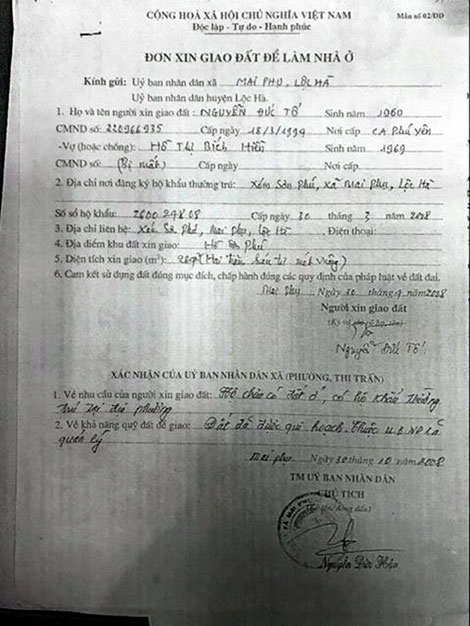 CỘNG HOÀ XÃ HỘI CHỦ NGHĨA VIỆT NAM
Mẫu số 02/ĐĐ
Độc lập - Tự do - Hạnh phúc
ĐƠN XIN GIAO ĐẤT ĐỂ LÀM NHÀ Ở
Kính gửi: Uỷ ban nhân dân xã MAI PHỤ, LỘC HÀ
Uỷ ban nhân dân huyện Lộc Hà.
1. Họ và tên người xin giao đất : NGUYỄN ĐỨC TỐ Sinh năm 1960
CMND số: 220966935 Cấp ngày 18/3/1994 Nơi cấp CA PHÚ YÊN
-Vợ (hoặc chồng): Hồ Thị Bích Hiền Sinh năm 1969
CMND số: (Bị mất) Cấp ngày Nơi cấp
2. Địa chỉ nơi đăng ký hộ khẩu thường trú: Xóm Sơn Phú, xã Mai Phụ, Lộc Hà
Số sổ hộ khẩu: Cấp ngày 30 tháng 3 năm 2008
3. Địa chỉ liên hệ: Xóm Sơn Phú, Mai Phụ, Lộc Hà Điện thoại:
4. Địa điểm khu đất xin giao: Sơn Phú
5. Diện tích xin giao (m²): (Hai trăm mét vuông)
6. Cam kết sử dụng đất đúng mục đích, chấp hành đúng các quy định của pháp luật về đất đai.
Mai Phụ, Ngày 30 tháng 9 năm 2008
Người xin giao đất
Nguyễn Đức Tố
XÁC NHẬN CỦA UỶ BAN NHÂN DÂN XÃ (PHƯỜNG, THỊ TRẤN)
1. Về nhu cầu của người xin giao đất: Hộ chưa có đất ở, có hộ khẩu thường
trú tại địa phương
2. Về khả năng quỹ đất để giao: Đất đã được qui hoạch. Thuộc U.B.ND xã
quản lý
Mai phụ, Ngày 30 tháng 10 năm 2008
TM UỶ BAN NHÂN DÂN
CHỦ TỊCH
Nguyễn Đức